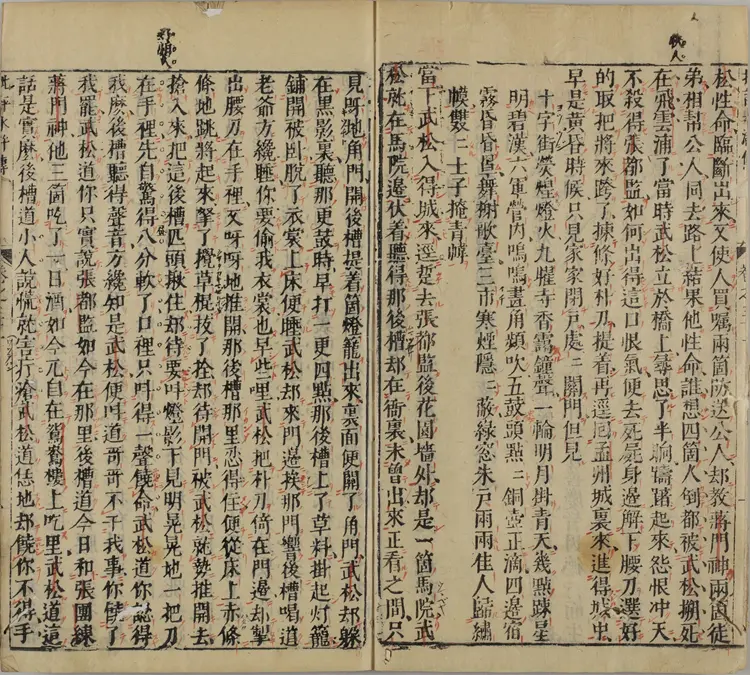 快人
松性命臨斷出來又使人買囑兩箇防送公人却教蔣門神兩箇徒
弟相幫公人同去路上結果他性命誰想四箇人倒都被武松搠死
在飛雲浦了當時武松立於橋上尋思了半晌躊躇起來怨恨冲天
不殺得張都監如何出得這口恨氣便去死屍身邊解下腰刀選好
的取把將來跨了揀條好朴刀提着再逕回孟州城裏來進得城中
早是黃昏時候只見家家閉戶處〻關門但見
十字街熒煌燈火九曜寺香靄鐘聲一輪明月掛青天幾點踈星
明碧漢六軍營內嗚嗚畫角頻吹五鼓頭點〻銅壺正滴四邊宿
霧昏昏罩舞榭歌臺三市寒煙隱〻蔽綠窓朱戶兩兩佳人歸繡
幙雙〻士子掩青幃
當下武松入得城來逕踅去張都監後花園墻外却是一箇馬院武
松就在馬院邊伏着聽得那後槽却在衙裏未曾出來正看之間只
見呀地角門開後槽提着箇燈籠出來裏面便關了角門武松却躲
在黑影裏聽那更鼓時早打一更四點那後槽上了草料掛起灯籠
鋪開被臥脫了衣裳上床便睡武松却來門邊挨那門響後槽喝道
老爺方纔睡你要偷我衣裳也早些哩武松把朴刀倚在門邊却掣
出腰刀在手裡又呀呀地推開那後槽那里忍得住便從床上赤條
條地跳將起來拏了攪草棍拔了拴却待開門被武松就勢推開去
搶入來把這後槽匹頭揪住却待要呌燈影下見明晃晃地一把刀
在手裡先自驚得八分軟了口裡只呌得一聲饒命武松道你認得
我麽後槽聽得聲音方纔知是武松便呌道哥哥不干我事你饒了
我罷武松道你只實說張都監如今在那里後槽道今日和張團練
蔣門神他三箇吃了一日酒如今兀自在鴛鴦樓上吃里武松道這
話是實麽後槽道小人說謊就害疔瘡武松道恁地却饒你不得手